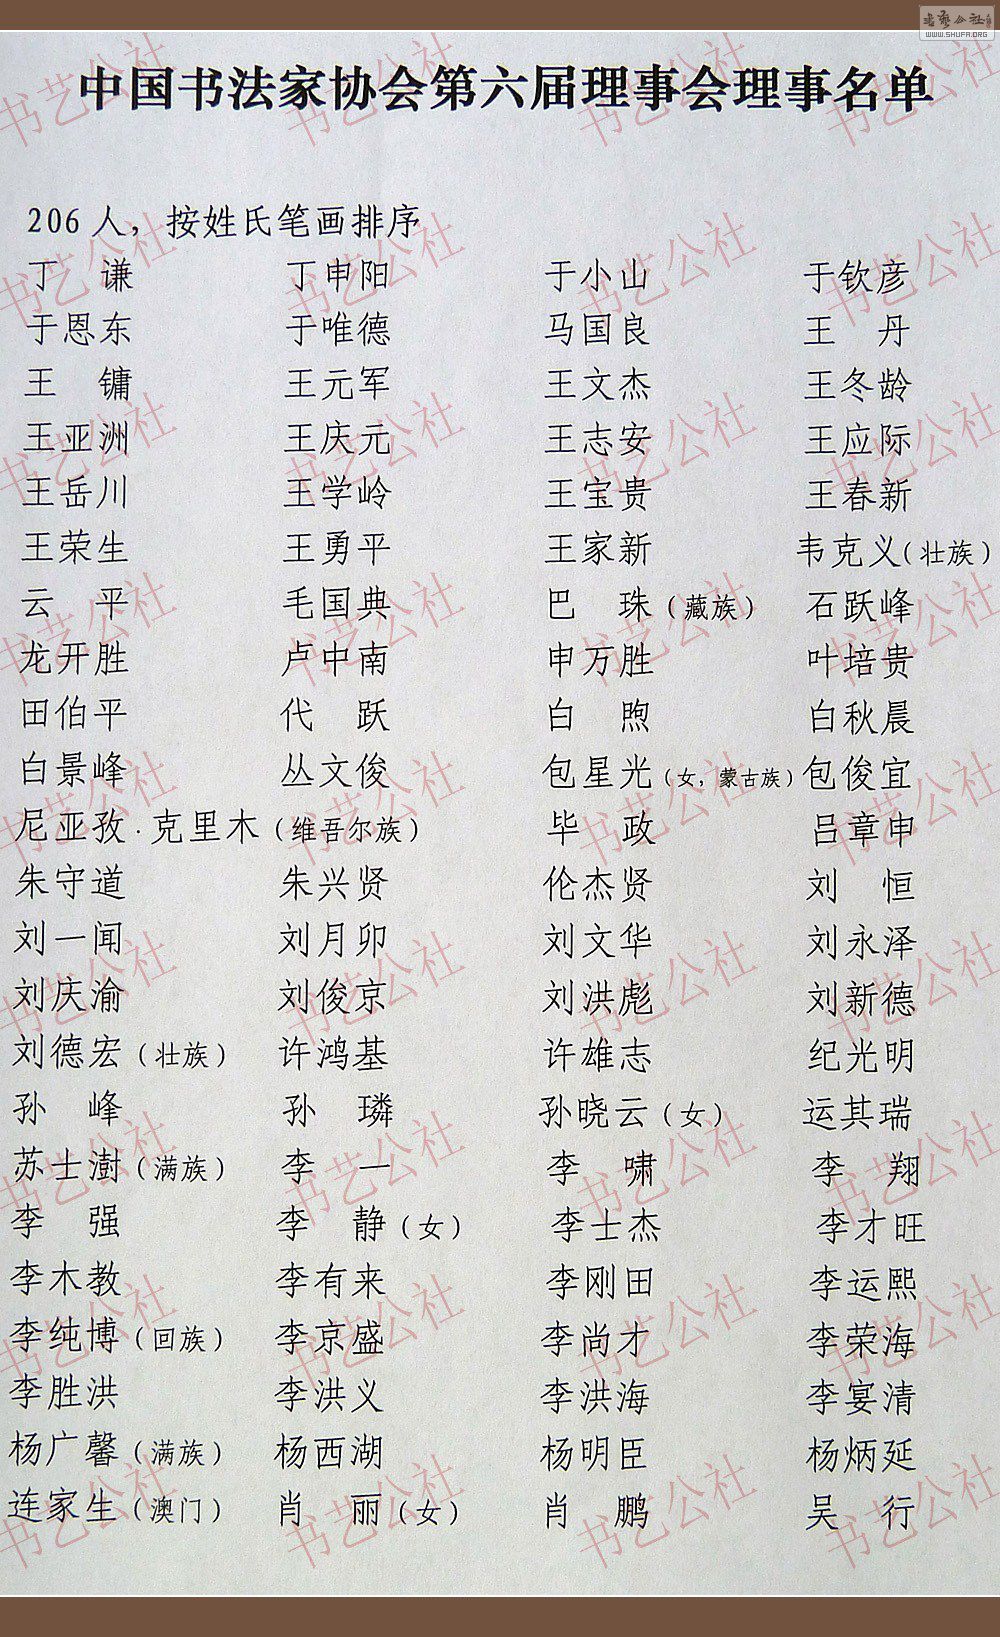 书艺公社
WWW.SHUFA.ORG
中国书法家协会第六届理事会理事名单
206 人，按姓氏笔画排序
丁 谦 丁申阳 于小山 于钦彦
于恩东 于唯德 马国良 王 丹
王 镛 王元军 王文杰 王冬龄
王亚洲 王庆元 王志安 王应际
王岳川 王学岭 王宝贵 王春新
王荣生 王勇平 王家新 韦克义（壮族）
云 平 毛国典 巴 珠（藏族） 石跃峰
龙开胜 卢中南 申万胜 叶培贵
田伯平 代 跃 白 煦 白秋晨
白景峰 丛文俊 包星光（女，蒙古族） 包俊宜
尼亚孜·克里木（维吾尔族） 毕 政 吕章申
朱守道 朱兴贤 伦杰贤 刘 恒
刘一闻 刘月卯 刘文华 刘永泽
刘庆渝 刘俊京 刘洪彪 刘新德
刘德宏（壮族） 许鸿基 许雄志 纪光明
孙 峰 孙 璘 孙晓云（女） 运其瑞
苏士澍（满族） 李 一 李 啸 李 翔
李 强 李 静（女） 李士杰 李才旺
李木教 李有来 李刚田 李运熙
李纯博（回族） 李京盛 李尚才 李荣海
李胜洪 李洪义 李洪海 李宴清
杨广馨（满族） 杨西湖 杨明臣 杨炳延
连家生（澳门） 肖 丽（女） 肖 鹏 吴 行